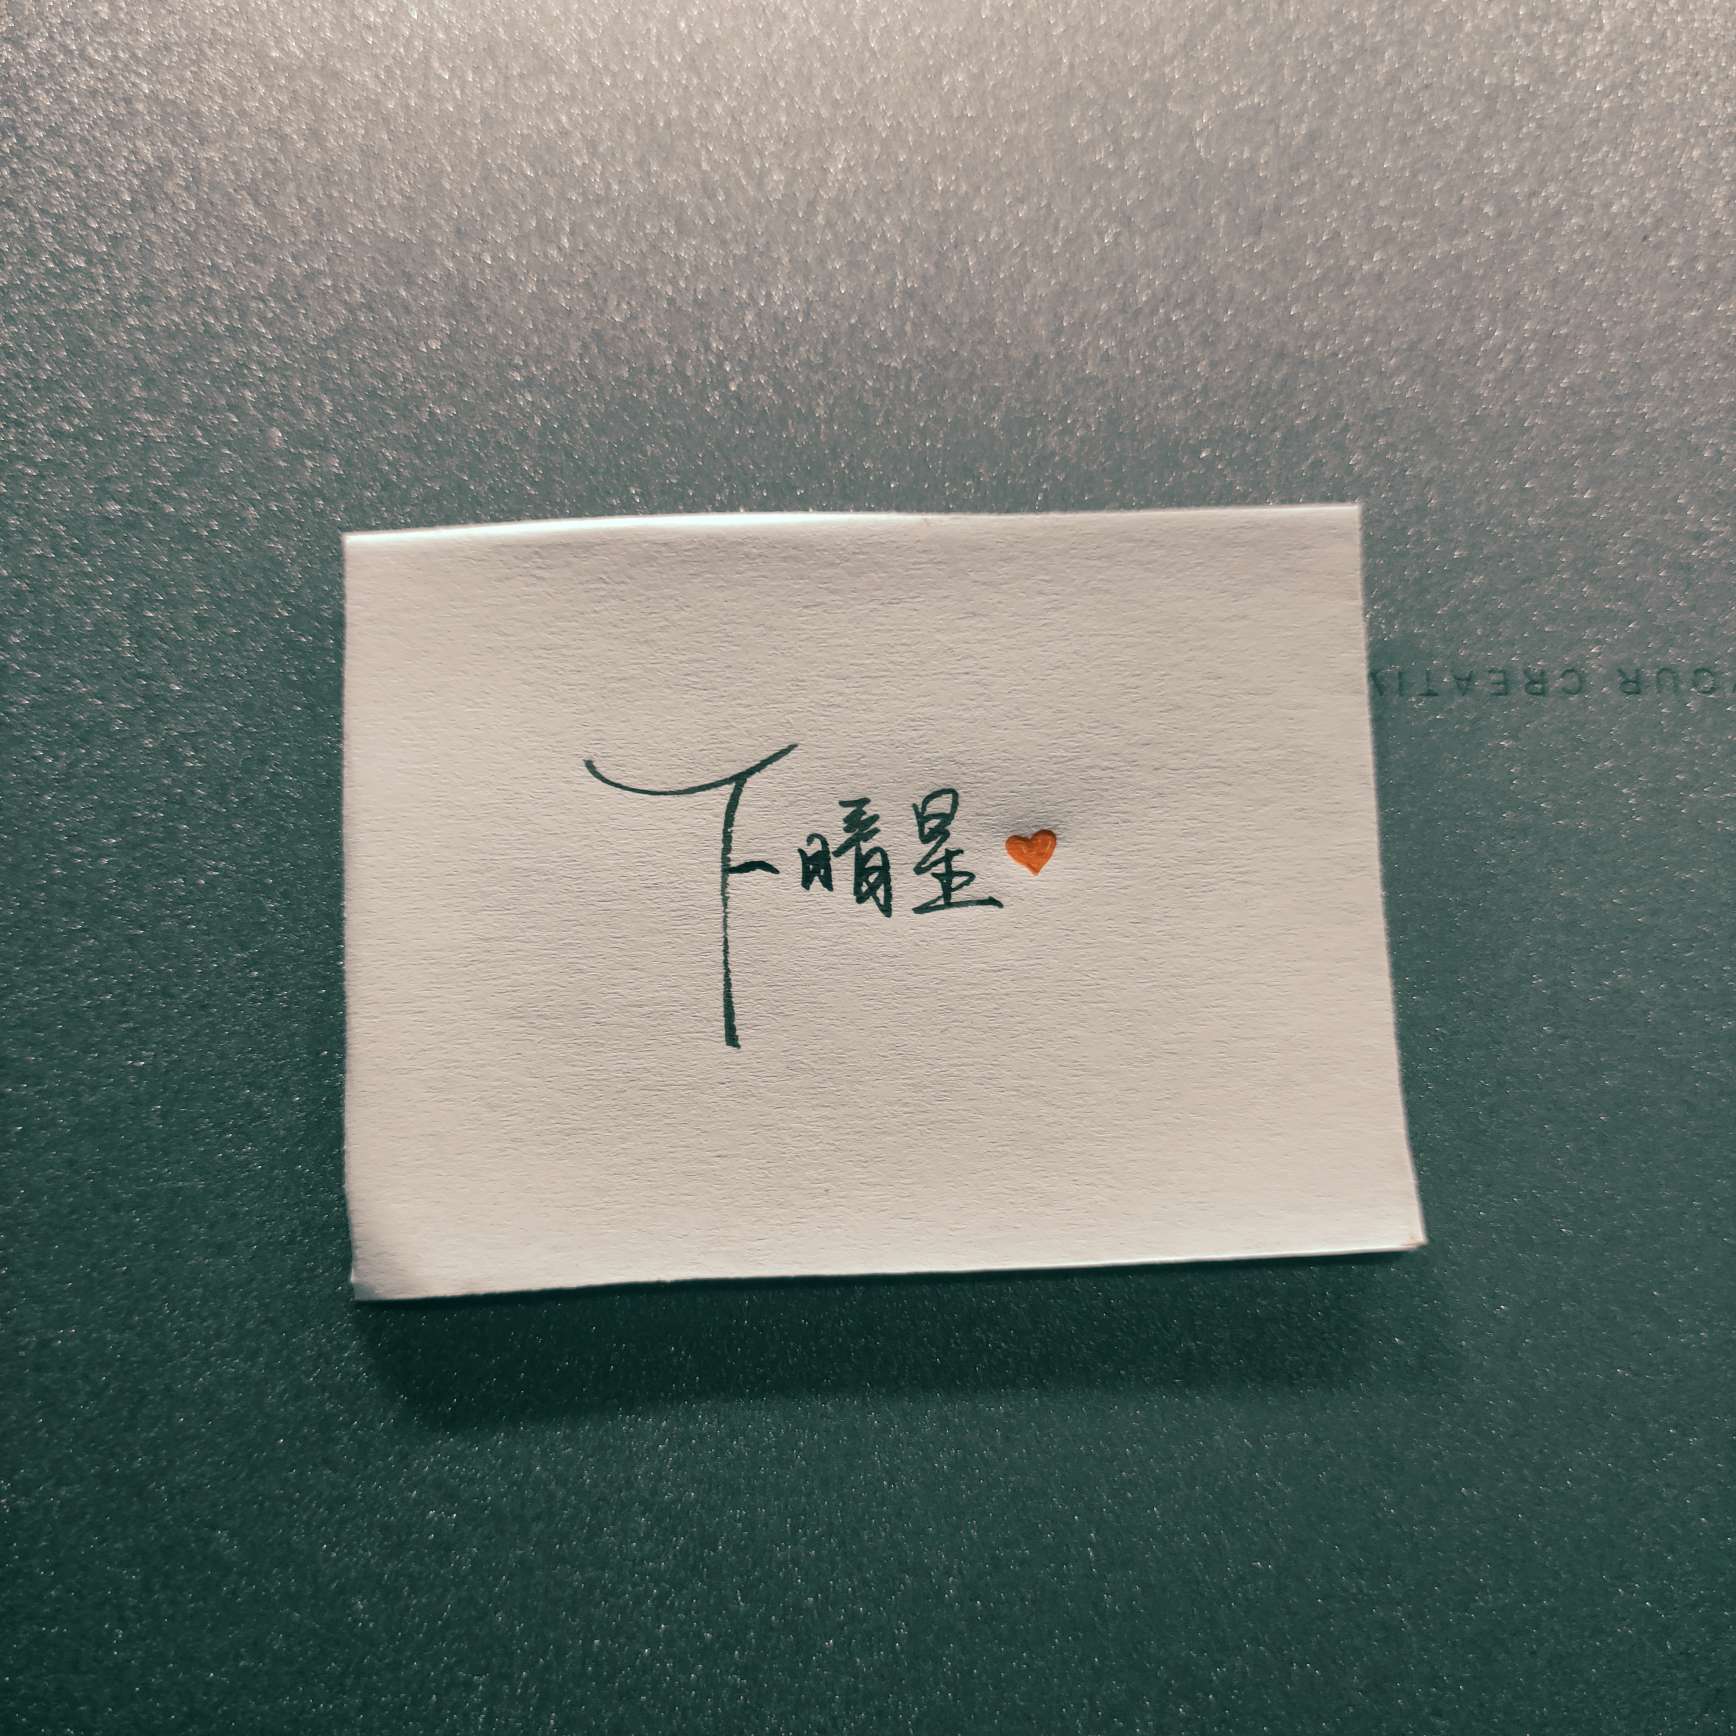 下晴星
OUR CREATIV